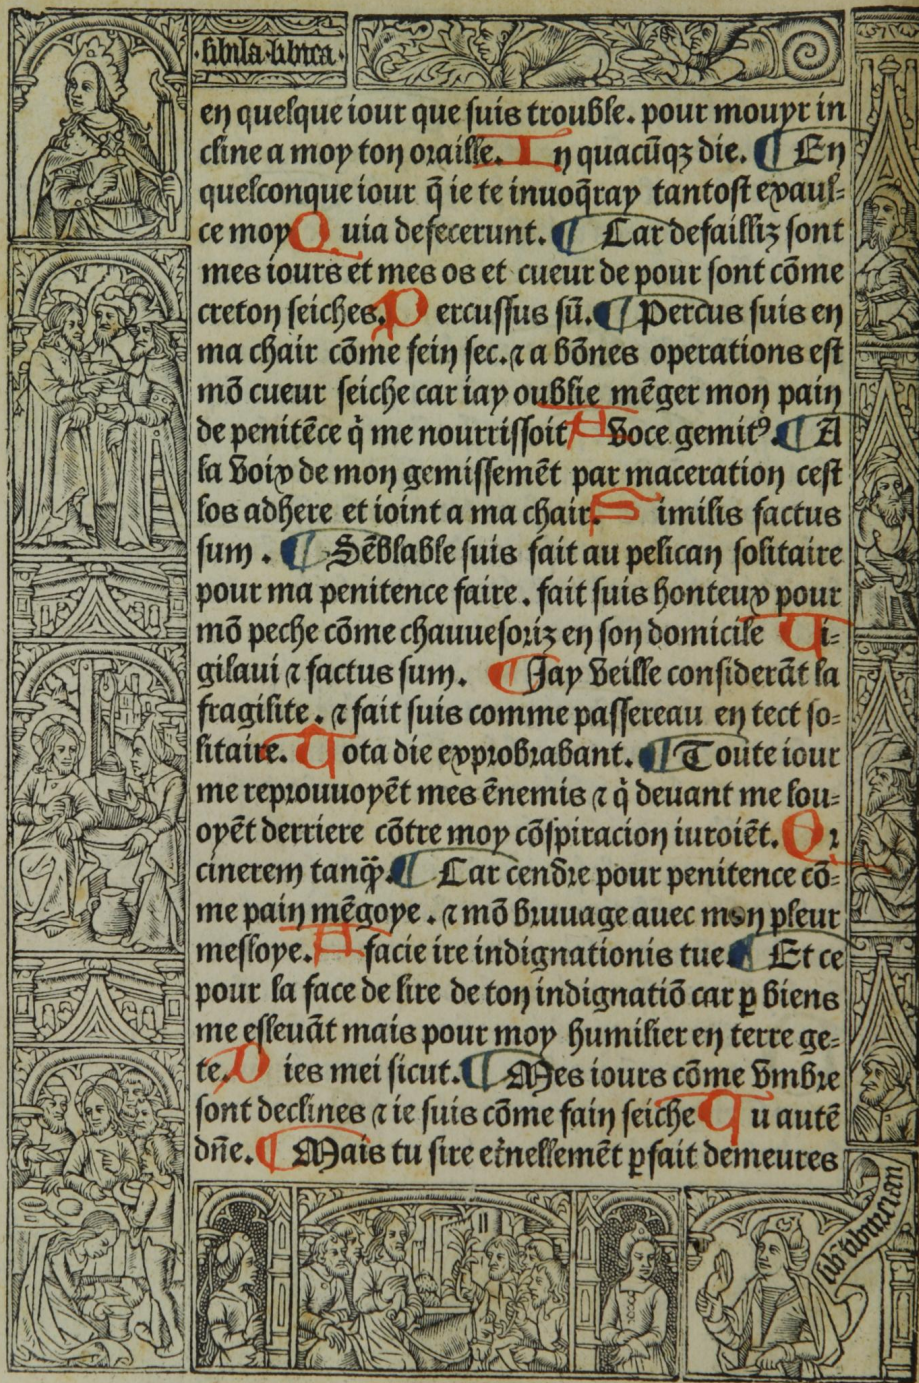 sibila libica
en quelque iour que suis trouble. pour mouyr in
cline a moy ton oraille. In quacũqʒ die. ¶ En
quelconque iour q̃ ie te inuoq̃ray tantost exaul-
ce moy Quia defecerunt. ¶ Car deffailliz sont
mes iours et mes os et cueur de pour sont cõme
creton seiches. Percussus sũ. ¶ Percus suis en
ma chair cõme fein sec. ⁊ a bõnes operations est
mõ cueur seiche car iay oublie mẽger mon pain
de penitẽce q̇ me nourrissoit A voce gemitꝰ. ¶ A
la voix de mon gemissemẽt par maceration cest
los adhere et ioint a ma chair. Similis factus
sum . ¶ Sẽblable suis fait au pelican solitaire
pour ma penitence faire . fait suis honteux pour
mõ peche cõme chauuesoriz en son domicile Ui-
gilaui ⁊ factus sum. ¶ Jay veille considerãt la
fragilite . ⁊ fait suis comme passereau en tect so-
litaire. Tota die exprobrabant. ¶ Toute iour
me reprouuoyẽt mes ẽnemis ⁊ q̇ deuant me lou-
oyẽt derriere cõtre moy cõspiracion iuroiẽt. Qr
cinerem tanqꝫ̃. ¶ Car cendre pour penitence cõ-
me pain mẽgoye . ⁊ mõ bruuage auec mon pleur
mesloye. A facie ire indignationis tue ¶ Et ce
pour la face de lire de ton indignatiõ car ꝑ biens
me esleuãt mais pour moy humilier en terre ge-
te. Dies mei sicut. ¶ Mes iours cõme vmbre
sont declines ⁊ ie suis cõme fain seiche Tu autẽ
dñe. ¶ Mais tu sire et̃nellemẽt ꝑfait demeures